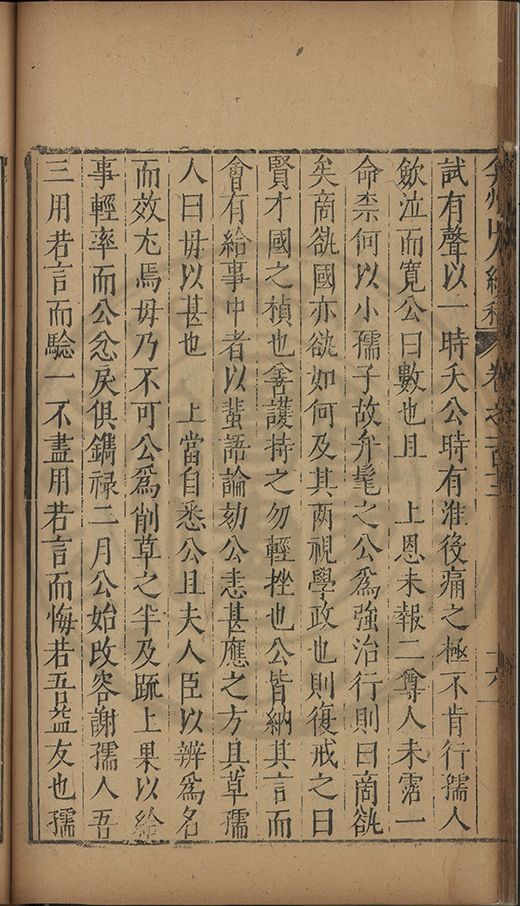 弇州山人續稿 卷之一百三 十六
試有聲以一時夭公時有淮後痛之極不肯行孺人
歛泣而寬公曰數也且　上恩未報二尊人未霑一
命柰何以小孺子故弁髦之公爲強治行則曰商銊
矣商銊國亦銊如何及其两視學政也則復戒之曰
賢才國之楨也舍護持之勿輕挫也公皆納其言而
會有給事中者以蜚語論劾公恚甚應之方具草孺
人曰毋以甚也　上當自悉公且夫人臣以辨爲名
而效尤焉毋乃不可公爲削草之半及䟽上果以給
事輕率而公忿戾俱鐫祿二月公始改容謝孺人吾
三用若言而驗一不盡用若言而悔若吾益友也孺